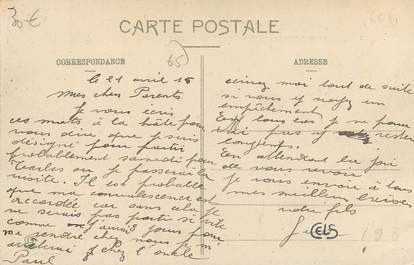 30€
CARTE POSTALE
(65)
CORRESPONDANCE
ADRESSE
Le 21 avril 15
Mes chers Parents
Je vous écris
ces mots à la hâte pour
vous dire que je suis
désigné pour partir
probablement samedi pour
où je passerai la
visite. Il est probable
que ma convalescence est
accordée car sans cela je
ne serais pas parti si vite
comme j'aurai jours pour
me rendre chez nous je m'
chez l'oncle
Paul
écrivez moi tout de suite
si vous y voyez un
empêchement
En tous cas je ne pourrai
pas y rester
longtemps.
En attendant la joie
de vous revoir
Je vous envoie à tous
mes meilleurs baisers
votre fils
CELS